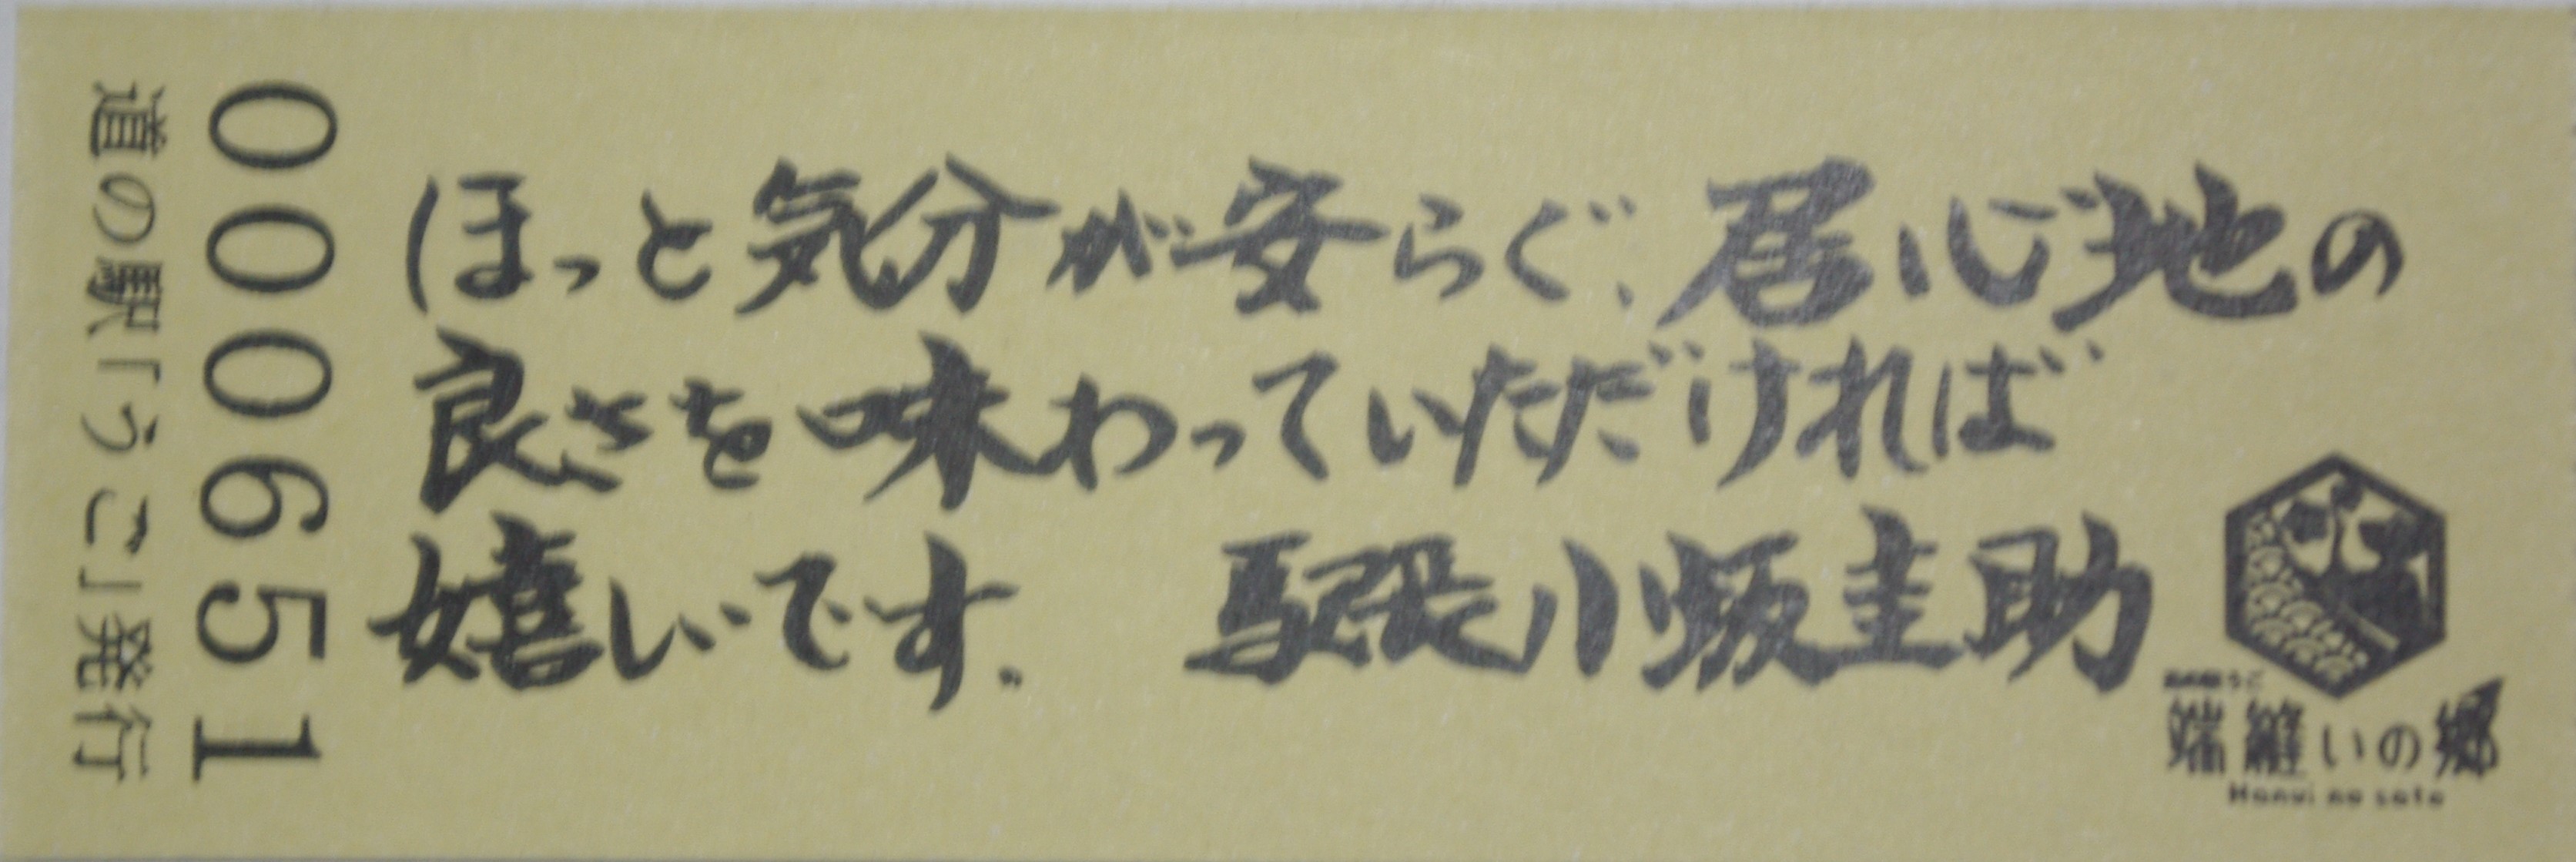 ほっと気分が安らぐ、居心地の
良さを味わっていただければ
嬉しいです。 駅長小坂圭助
道の駅うご
端縫いの郷
Hanui no sato
000651
道の駅「うご」発行